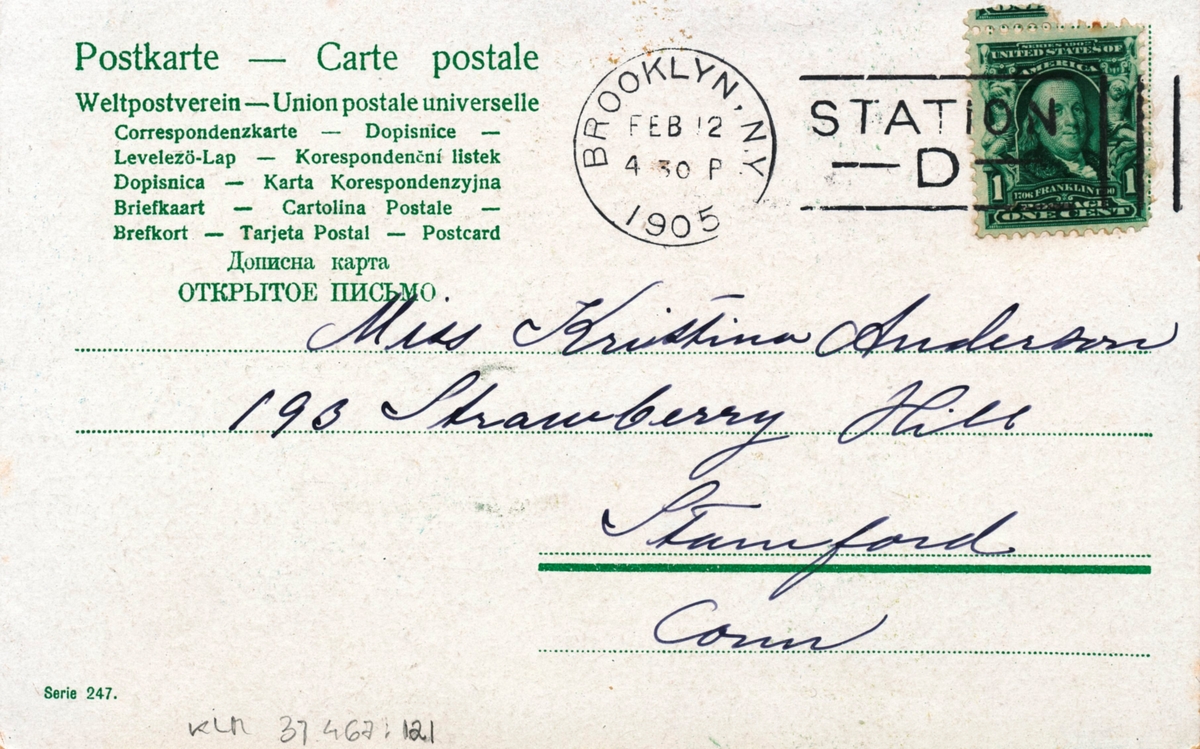 Postkarte — Carte postale
Weltpostverein — Union postale universelle
Correspondenzkarte — Dopisnice —
Levelező-Lap — Korespondenční listek
Dopisnica — Karta Korespondenzyjna
Briefkaart — Cartolina Postale —
Brefkort — Tarjeta Postal — Postcard
Дописна карта
ОТКРЫТОЕ ПИСЬМО
BROOKLYN, N.Y.
FEB 12
4 30 P
1905
STATION
D
SERIES 1902
UNITED STATES OF
AMERICA
1706 FRANKLIN 1790
1 POSTAGE 1
ONE CENT
Miss Kristina Anderson
193 Strawberry Hill
Stamford
Conn
Serie 247.
KLM 37 467:121